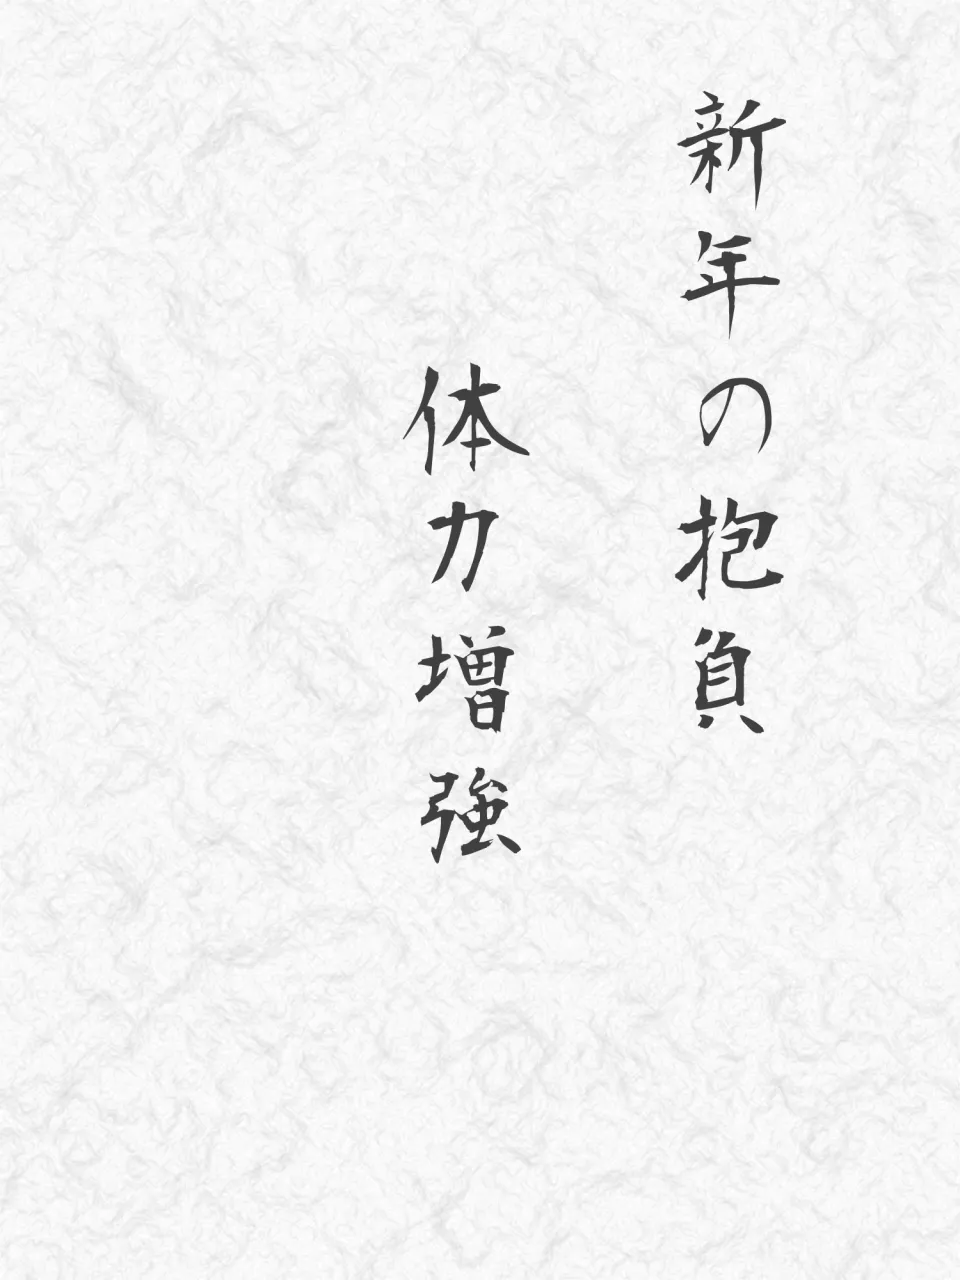 新年の抱負
体力増強